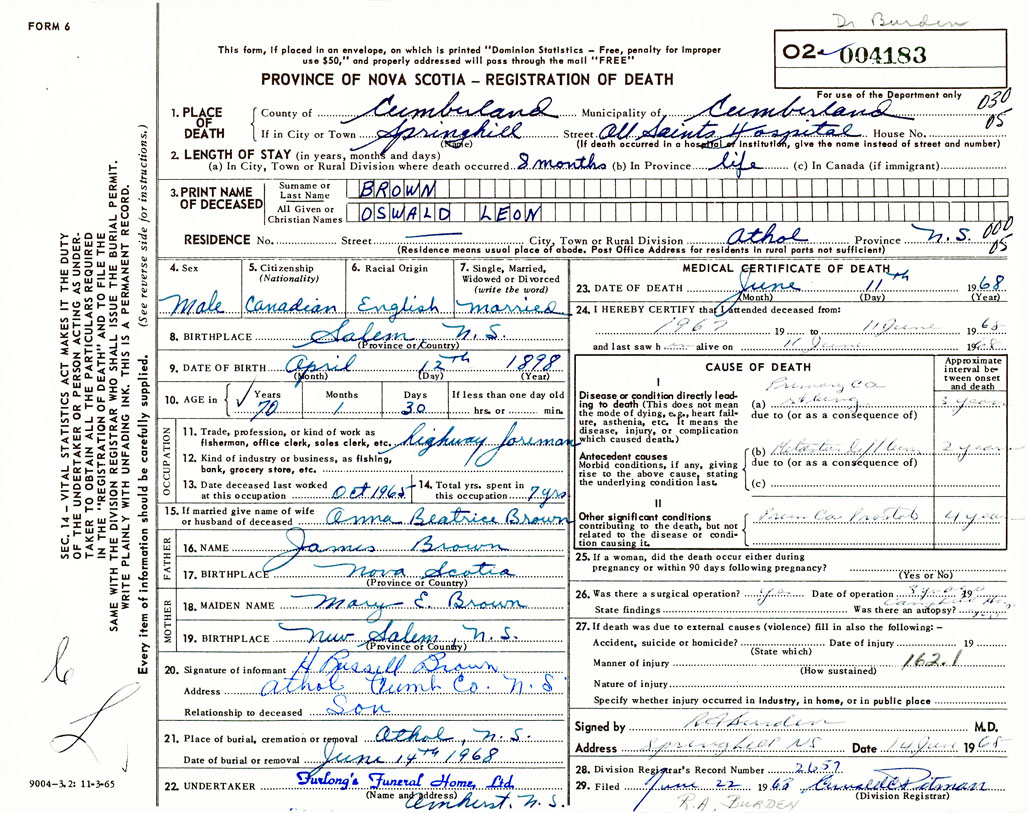 Dr Burden
FORM 6
O2- 004183
This form, if placed in an envelope, on which is printed "Dominion Statistics – Free, penalty for improper
use $50," and properly addressed will pass through the mail "FREE"
PROVINCE OF NOVA SCOTIA – REGISTRATION OF DEATH
For use of the Department only
030
05
1. PLACE OF DEATH County of Cumberland Municipality of Cumberland
If in City or Town Springhill Street All Saints Hospital House No.
(Name) (If death occurred in a hospital or institution, give the name instead of street and number)
2. LENGTH OF STAY (in years, months and days)
(a) In City, Town or Rural Division where death occurred 8 months (b) In Province life (c) In Canada (if immigrant)
3. PRINT NAME OF DECEASED Surname or Last Name BROWN
All Given or Christian Names OSWALD LEON
000
05
RESIDENCE No. Street City, Town or Rural Division Athol Province N.S.
(Residence means usual place of abode. Post Office Address for residents in rural parts not sufficient)
4. Sex Male
5. Citizenship (Nationality) Canadian
6. Racial Origin English
7. Single, Married, Widowed or Divorced (write the word) married
8. BIRTHPLACE Salem N.S.
(Province or Country)
9. DATE OF BIRTH April 12th 1898
(Month) (Day) (Year)
10. AGE in Years 70 Months 1 Days 30 If less than one day old hrs. or min.
OCCUPATION
11. Trade, profession, or kind of work as fisherman, office clerk, sales clerk, etc. highway foreman
12. Kind of industry or business, as fishing, bank, grocery store, etc.
13. Date deceased last worked at this occupation Oct 1965
14. Total yrs. spent in this occupation 7 yrs
15. If married give name of wife or husband of deceased Anna Beatrice Brown
FATHER
16. NAME James Brown
17. BIRTHPLACE Nova Scotia
(Province or Country)
MOTHER
18. MAIDEN NAME Mary E. Brown
19. BIRTHPLACE New Salem, N.S.
(Province or Country)
20. Signature of informant H Russell Brown
Address Athol Cumb Co. N.S
Relationship to deceased Son
21. Place of burial, cremation or removal Athol, N.S.
Date of burial or removal June 14th 1968
22. UNDERTAKER Furlong's Funeral Home, Ltd.
(Name and address) Amherst, N.S.
MEDICAL CERTIFICATE OF DEATH
23. DATE OF DEATH June 11th 1968
(Month) (Day) (Year)
24. I HEREBY CERTIFY that I attended deceased from:
1967 19 to 11 June 1968
and last saw h alive on 11 June 1968
CAUSE OF DEATH
Approximate interval between onset and death
I
Disease or condition directly leading to death (This does not mean the mode of dying, e.g., heart failure, asthenia, etc. It means the disease, injury, or complication which caused death.)
(a) Primary Ca 3 years
due to (or as a consequence of)
Antecedent causes
Morbid conditions, if any, giving rise to the above cause, stating the underlying condition last.
(b) 2 years
due to (or as a consequence of)
(c)
II
Other significant conditions contributing to the death, but not related to the disease or condition causing it.
Prim Ca Prostate 4 years
25. If a woman, did the death occur either during pregnancy or within 90 days following pregnancy?
(Yes or No)
26. Was there a surgical operation? yes Date of operation 19
State findings Was there an autopsy?
27. If death was due to external causes (violence) fill in also the following: –
Accident, suicide or homicide? Date of injury 19
(State which)
Manner of injury 162.1
(How sustained)
Nature of injury
Specify whether injury occurred in industry, in home, or in public place
Signed by R A Burden M.D.
Address Springhill NS Date 14 June 1968
28. Division Registrar's Record Number 2657
29. Filed June 22 1968
(Division Registrar)
R.A. BURDEN
SEC. 14 – VITAL STATISTICS ACT MAKES IT THE DUTY
OF THE UNDERTAKER OR PERSON ACTING AS UNDER-
TAKER TO OBTAIN ALL THE PARTICULARS REQUIRED
IN THE "REGISTRATION OF DEATH" AND TO FILE THE
SAME WITH THE DIVISION REGISTRAR WHO SHALL ISSUE THE BURIAL PERMIT.
WRITE PLAINLY WITH UNFADING INK. THIS IS A PERMANENT RECORD.
Every item of information should be carefully supplied. (See reverse side for instructions.)
9004–3.2: 11-3-65